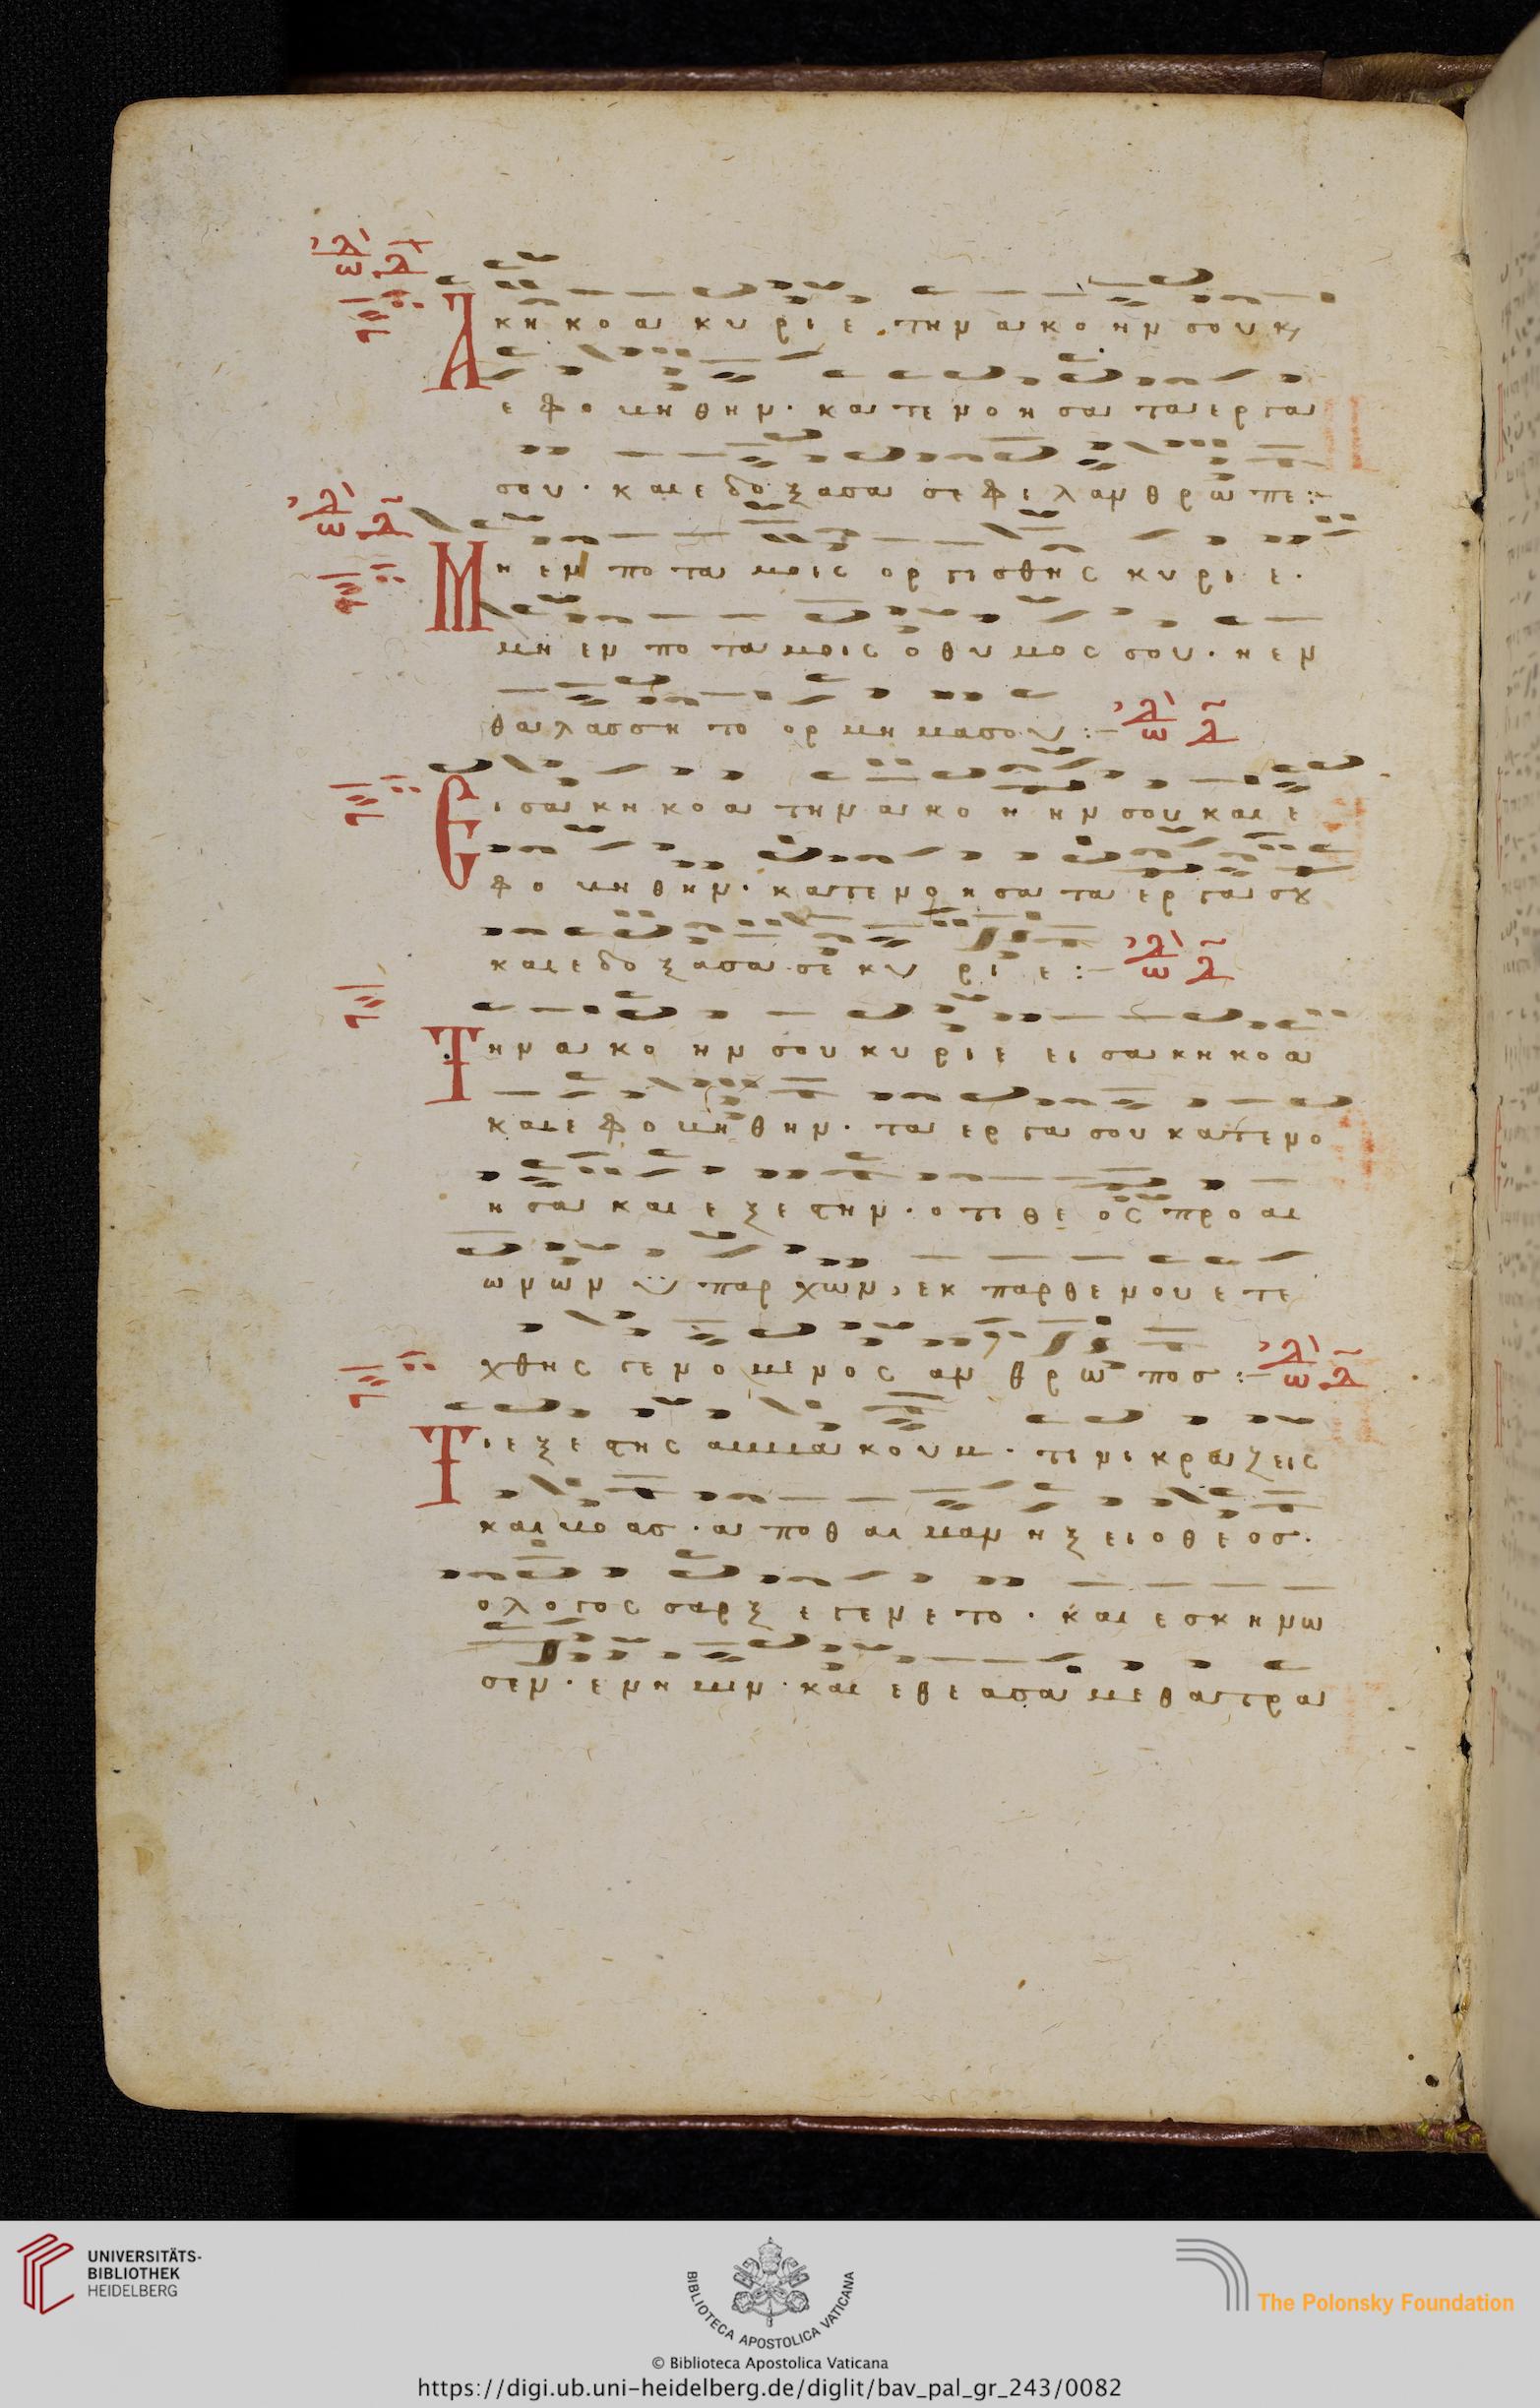 Ακηκοα κυριε . την ακοην σου κ,
εφοβηθην · κατενοησα τα εργα
σου · και εδοξασα σε φιλανθρωπε :-
Μη εν ποταμοις οργισθης κυριε ·
μη εν ποταμοις ο θυμος σου · η εν
θαλασση το ορμημα σου :-
Εισακηκοα την ακοηην σου και ε
φοβηθην · κατενοησα τα εργα σȣ
και εδοξασα σε κυριε :-
Την ακοην σου κυριε εισακηκοα
και εφοβηθην · τα εργα σου κατενο
ησα και εξεστην · οτι θεος προ αι
ωνων ϋπαρχων, εκ παρθενου ετε
χθης γενομενος ανθρωπος :-
Τι εξεστης αμμακουμ · τινι κραζεις
και βοας · απο θαιμαν ηξει ο θεος ·
ο λογος σαρξ εγενετο · και εσκηνω
σεν · εν ημιν · και εθεασαμεθα τερα
UNIVERSITÄTS-
BIBLIOTHEK
HEIDELBERG
BIBLIOTECA APOSTOLICA VATICANA
The Polonsky Foundation
© Biblioteca Apostolica Vaticana
https://digi.ub.uni-heidelberg.de/diglit/bav_pal_gr_243/0082